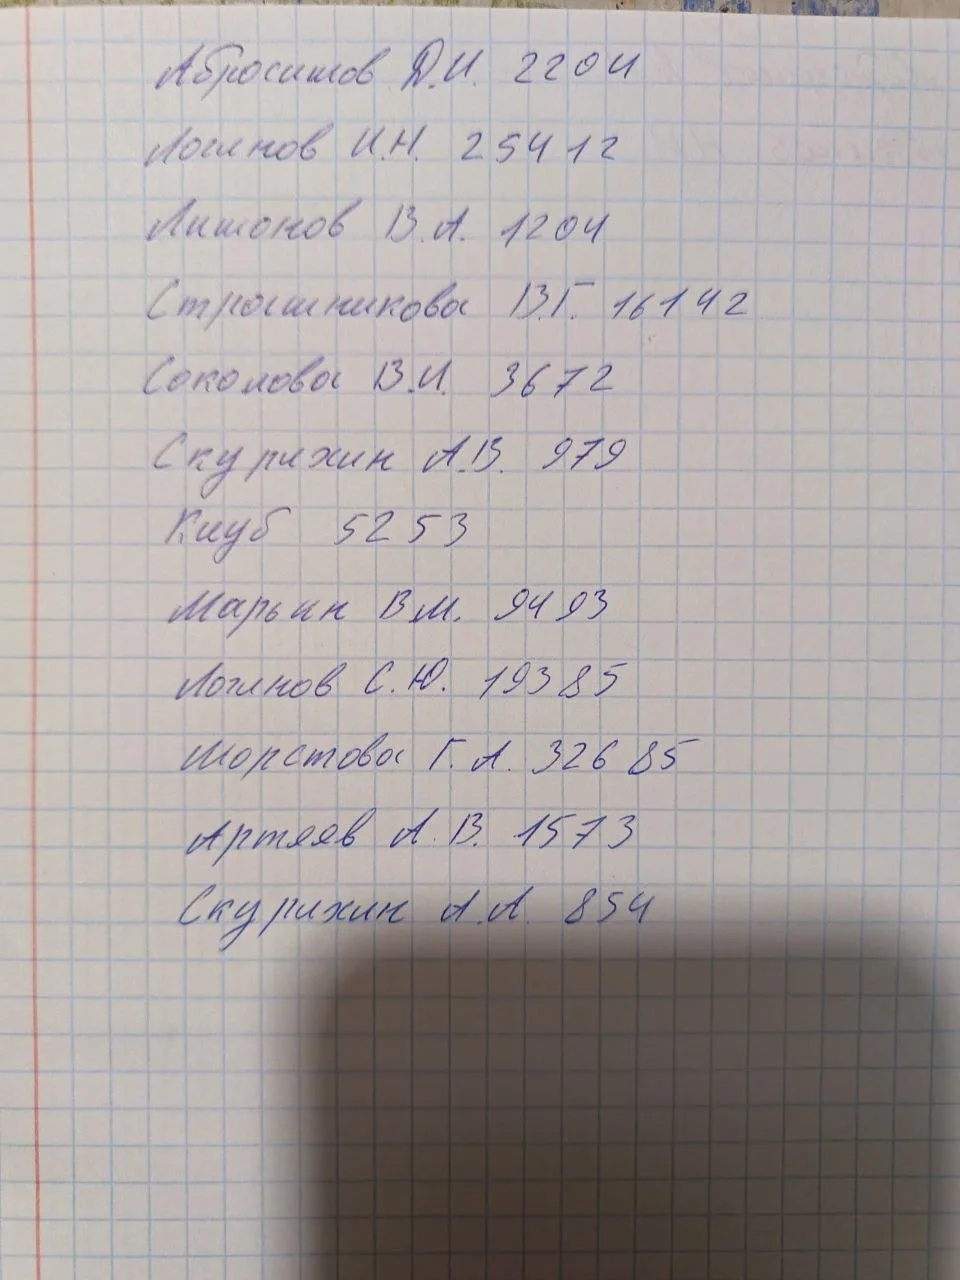 Абросимов Д.И. 2204
Логинов И.Н. 25412
Лимонов В.А. 1204
Страшникова В.Г. 16142
Соколова В.И. 3672
Скурихин А.В. 979
Клуб 5253
Марьин В.М. 9493
Логинов С.Ю. 19385
Шорстова Г.А. 32685
Артяев А.В. 1573
Скурихин А.А. 854